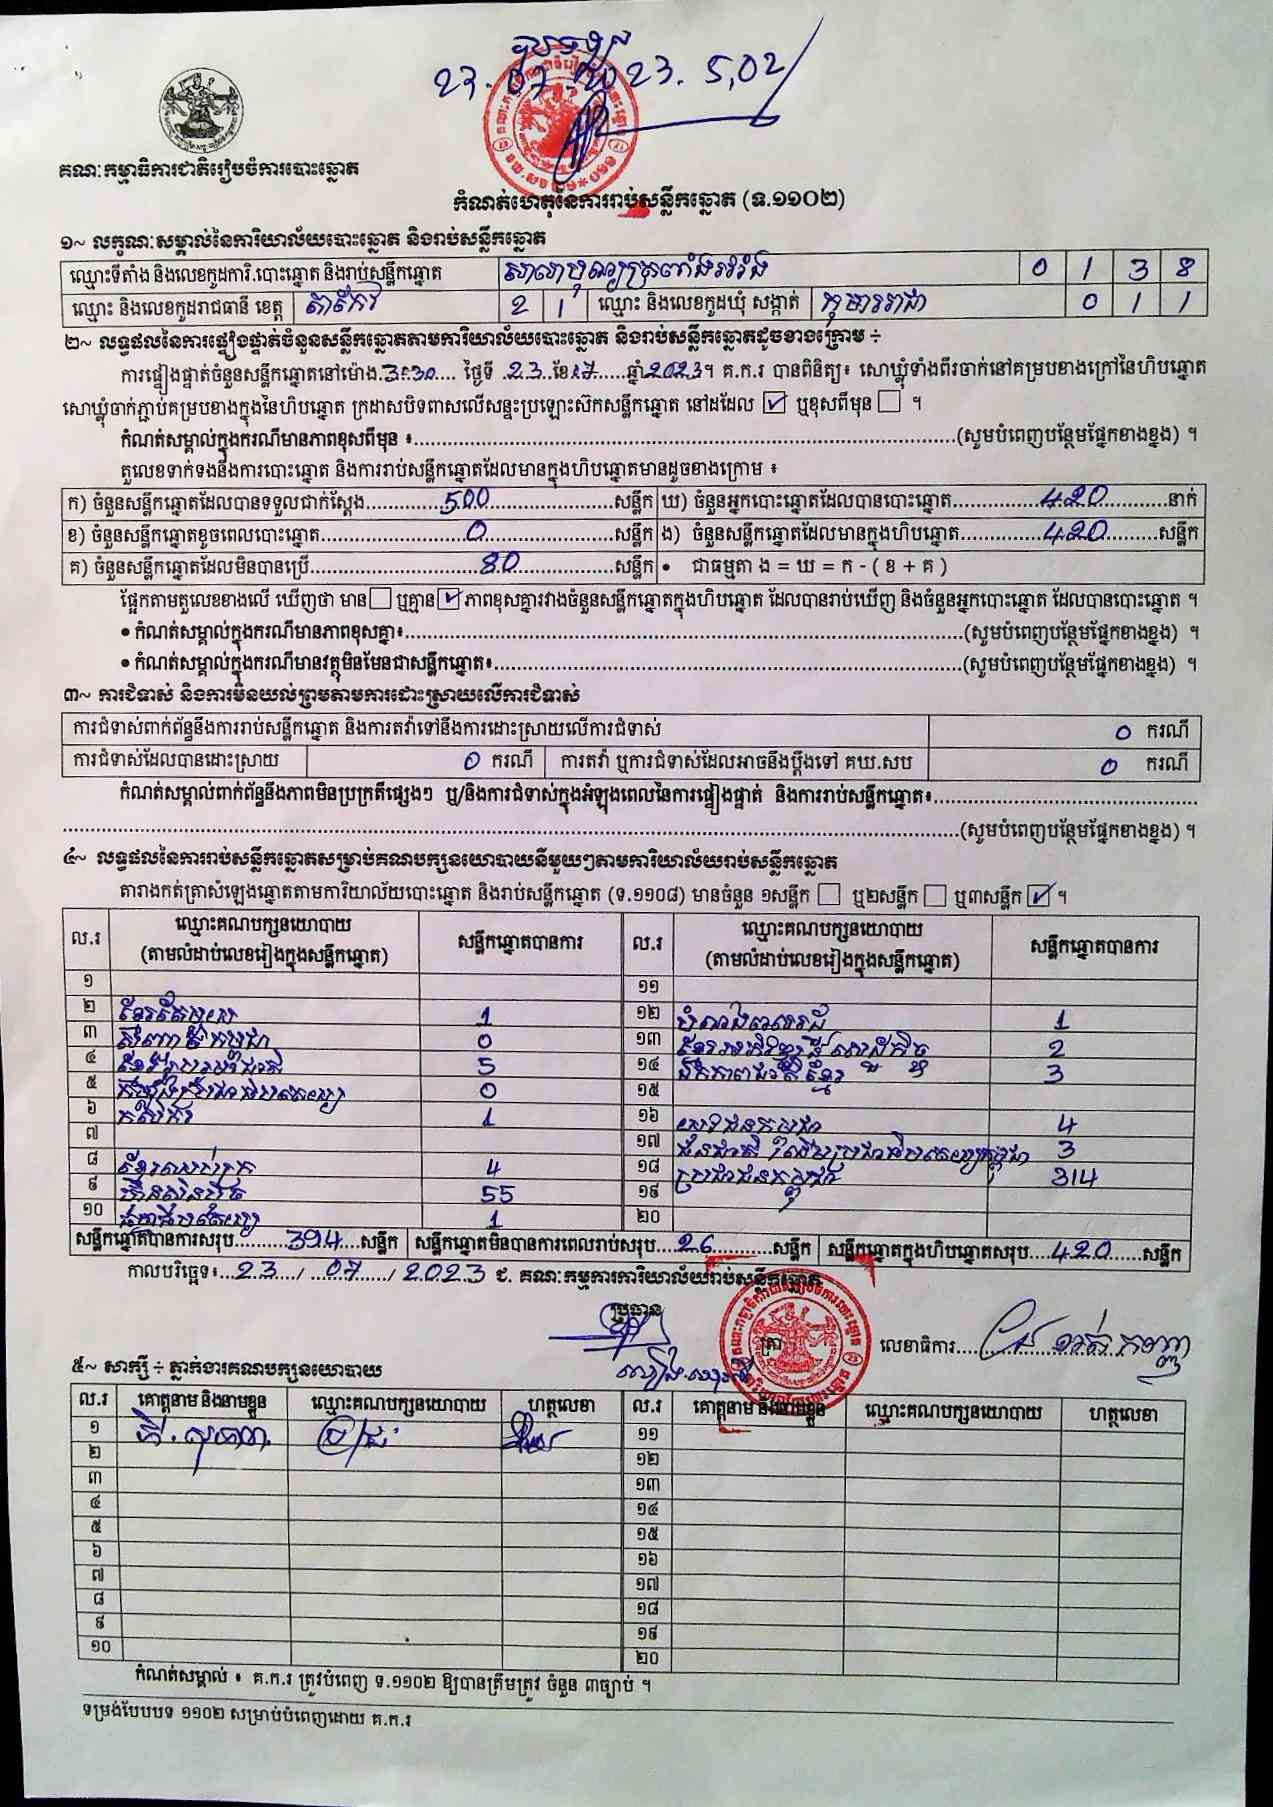 23. 07. 23. 5,02
គណៈកម្មាធិការជាតិរៀបចំការបោះឆ្នោត
កំណត់ហេតុនៃការរាប់សន្លឹកឆ្នោត (ទ.១១០២)
១~ លក្ខណៈសម្គាល់នៃការិយាល័យបោះឆ្នោត និងរាប់សន្លឹកឆ្នោត
ឈ្មោះទីតាំង និងលេខកូដការិ.បោះឆ្នោត និងរាប់សន្លឹកឆ្នោត 0 1 3 8
ឈ្មោះ និងលេខកូដរាជធានី ខេត្ត តាកែវ 2 1 ឈ្មោះ និងលេខកូដឃុំ សង្កាត់ កុមាររាជា 0 1 1
២~ លទ្ធផលនៃការផ្ទៀងផ្ទាត់ចំនួនសន្លឹកឆ្នោតតាមការិយាល័យបោះឆ្នោត និងរាប់សន្លឹកឆ្នោតដូចខាងក្រោម ÷
ការផ្ទៀងផ្ទាត់ចំនួនសន្លឹកឆ្នោតនៅម៉ោង.3:30.... ថ្ងៃទី .23..ខែ.07....ឆ្នាំ.2023។ គ.ក.រ បានពិនិត្យ៖ សោឃ្លុំទាំងពីរចាក់នៅគម្របខាងក្រៅនៃហិបឆ្នោត
សោឃ្លុំចាក់ភ្ជាប់គម្របខាងក្នុងនៃហិបឆ្នោត ក្រដាសបិទពាសលើសន្ទះប្រឡោះស៊កសន្លឹកឆ្នោត នៅដដែល ☑ ឬខុសពីមុន ☐ ។
កំណត់សម្គាល់ក្នុងករណីមានភាពខុសពីមុន ៖..........(សូមបំពេញបន្ថែមផ្នែកខាងខ្នង) ។
តួលេខទាក់ទងនឹងការបោះឆ្នោត និងការរាប់សន្លឹកឆ្នោតដែលមានក្នុងហិបឆ្នោតមានដូចខាងក្រោម ៖
ក) ចំនួនសន្លឹកឆ្នោតដែលបានទទួលជាក់ស្តែង..........500..........សន្លឹក ឃ) ចំនួនអ្នកបោះឆ្នោតដែលបានបោះឆ្នោត..........420..........នាក់
ខ) ចំនួនសន្លឹកឆ្នោតខូចពេលបោះឆ្នោត..........0..........សន្លឹក ង) ចំនួនសន្លឹកឆ្នោតដែលមានក្នុងហិបឆ្នោត..........420..........សន្លឹក
គ) ចំនួនសន្លឹកឆ្នោតដែលមិនបានប្រើ..........80..........សន្លឹក • ជាធម្មតា ង = ឃ = ក - ( ខ + គ )
ផ្អែកតាមតួលេខខាងលើ ឃើញថា មាន ☐ ឬគ្មាន ☑ ភាពខុសគ្នារវាងចំនួនសន្លឹកឆ្នោតក្នុងហិបឆ្នោត ដែលបានរាប់ឃើញ និងចំនួនអ្នកបោះឆ្នោត ដែលបានបោះឆ្នោត ។
• កំណត់សម្គាល់ក្នុងករណីមានភាពខុសគ្នា៖..........(សូមបំពេញបន្ថែមផ្នែកខាងខ្នង) ។
• កំណត់សម្គាល់ក្នុងករណីមានវត្ថុមិនមែនជាសន្លឹកឆ្នោត៖..........(សូមបំពេញបន្ថែមផ្នែកខាងខ្នង) ។
៣~ ការជំទាស់ និងការមិនយល់ព្រមតាមការដោះស្រាយលើការជំទាស់
ការជំទាស់ពាក់ព័ន្ធនឹងការរាប់សន្លឹកឆ្នោត និងការតវ៉ាទៅនឹងការដោះស្រាយលើការជំទាស់ 0 ករណី
ការជំទាស់ដែលបានដោះស្រាយ 0 ករណី ការតវ៉ា ឬការជំទាស់ដែលអាចនឹងប្តឹងទៅ គឃ.សប 0 ករណី
កំណត់សម្គាល់ពាក់ព័ន្ធនឹងភាពមិនប្រក្រតីផ្សេងៗ ឬ/និងការជំទាស់ក្នុងអំឡុងពេលនៃការផ្ទៀងផ្ទាត់ និងការរាប់សន្លឹកឆ្នោត៖..........
..........(សូមបំពេញបន្ថែមផ្នែកខាងខ្នង) ។
៤~ លទ្ធផលនៃការរាប់សន្លឹកឆ្នោតសម្រាប់គណបក្សនយោបាយនីមួយៗតាមការិយាល័យរាប់សន្លឹកឆ្នោត
តារាងកត់ត្រាសំឡេងឆ្នោតតាមការិយាល័យបោះឆ្នោត និងរាប់សន្លឹកឆ្នោត (ទ.១១០៨) មានចំនួន ១សន្លឹក ☐ ឬ២សន្លឹក ☐ ឬ៣សន្លឹក ☑ ។
ល.រ ឈ្មោះគណបក្សនយោបាយ (តាមលំដាប់លេខរៀងក្នុងសន្លឹកឆ្នោត) សន្លឹកឆ្នោតបានការ ល.រ ឈ្មោះគណបក្សនយោបាយ (តាមលំដាប់លេខរៀងក្នុងសន្លឹកឆ្នោត) សន្លឹកឆ្នោតបានការ
១ ១១
២ ខ្មែរតែមួយ 1 ១២ 1
៣ 0 ១៣ 2
៤ ខ្មែររួបរួមជាតិ 5 ១៤ ឯកភាពជាតិខ្មែរ 3
៥ 0 ១៥
៦ កសិករ 1 ១៦ យុវជនកម្ពុជា 4
៧ ១៧ 3
៨ 4 ១៨ ប្រជាជនកម្ពុជា 314
៩ ហ៊្វុនស៊ិនប៉ិច 55 ១៩
១០ 1 ២០
សន្លឹកឆ្នោតបានការសរុប..........394....សន្លឹក សន្លឹកឆ្នោតមិនបានការពេលរាប់សរុប....26..........សន្លឹក សន្លឹកឆ្នោតក្នុងហិបឆ្នោតសរុប....420......សន្លឹក
កាលបរិច្ឆេទ៖...23..../...07..../ 2023 ជ. គណៈកម្មការការិយាល័យរាប់សន្លឹកឆ្នោត
ប្រធាន ត្រា លេខាធិការ..........
៥~ សាក្សី ÷ ភ្នាក់ងារគណបក្សនយោបាយ
ល.រ គោត្តនាម និងនាមខ្លួន ឈ្មោះគណបក្សនយោបាយ ហត្ថលេខា ល.រ គោត្តនាម និងនាមខ្លួន ឈ្មោះគណបក្សនយោបាយ ហត្ថលេខា
១ ១១
២ ១២
៣ ១៣
៤ ១៤
៥ ១៥
៦ ១៦
៧ ១៧
៨ ១៨
៩ ១៩
១០ ២០
កំណត់សម្គាល់ ៖ គ.ក.រ ត្រូវបំពេញ ទ.១១០២ ឱ្យបានត្រឹមត្រូវ ចំនួន ៣ច្បាប់ ។
ទម្រង់បែបបទ ១១០២ សម្រាប់បំពេញដោយ គ.ក.រ